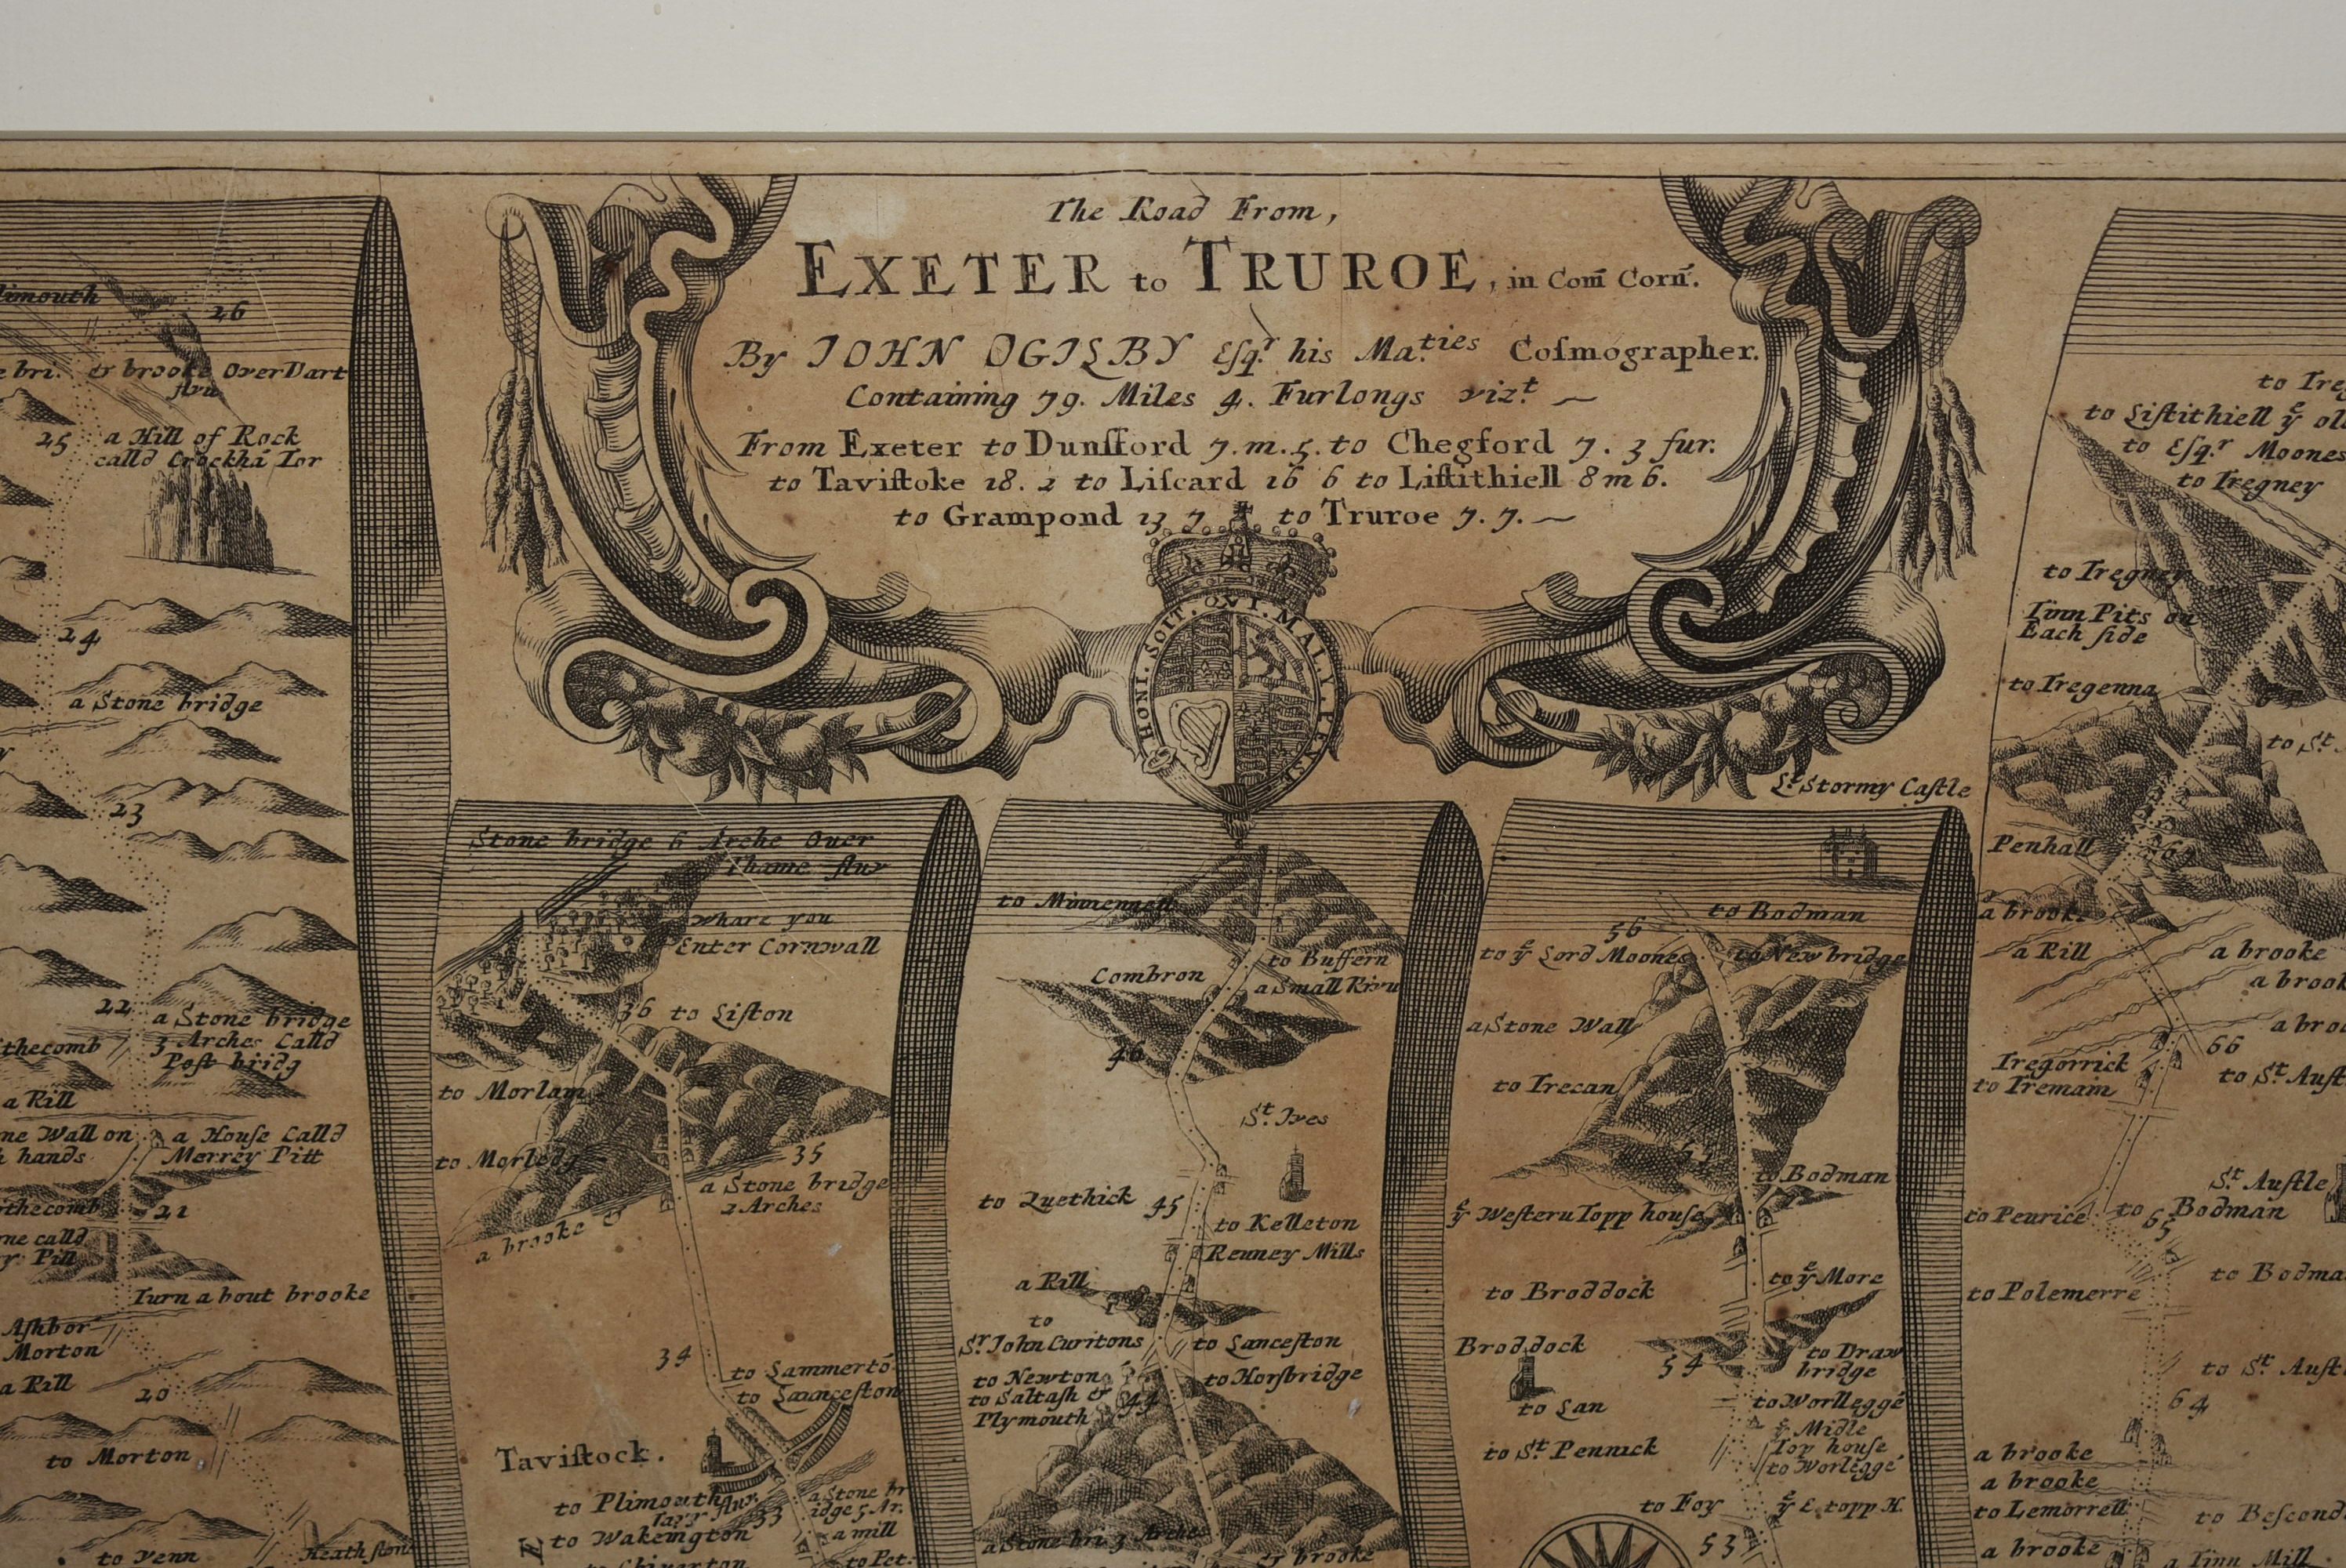 The Road From,
EXETER to TRUROE, in Com̄ Corn̄.
By JOHN OGILBY Eſqr. his Ma.ties Coſmographer.
Containing 79. Miles 4. Furlongs vizt.
From Exeter to Dunſford 7.m.5. to Chegford 7. 3 fur.
to Taviſtoke 18. 2 to Liſcard 16 6 to Liſtithiell 8 m 6.
to Grampond 13 7 to Truroe 7. 7.
HONI. SOIT. QVI. MAL. Y. PENSE
limouth
26
e bri. & brooke Over Dart
fluv
25
a Hill of Rock
calld Crockhā Tor
24
a Stone bridge
23
22
a Stone bridge
3 Arches Calld
Poſt bridg
ithecomb
a Rill
ne Wall on
hands
a Houſe Calld
Merrey Pitt
ithecomb
21
ne calld
y Pill
Turn a bout brooke
Aſhbor
Morton
a Rill
20
to Morton
to Venn
Heath ſton
Stone bridge 6 Arche Over
Thame fluv
Whare you
Enter Cornwall
36
to Liſton
to Morlam
to Morledg
35
a Stone bridge
2 Arches
a brooke &
34
to Lammertō
to Launceſton
Taviſtock.
to Plimouth
fluv.
Tavy
33
a Stone br
idge 5 Ar.
to Wakeington
a mill
to Pet.
to Minnennett
to Buffern
Combron
a Small Rivu
46
St. Ives
to Quethick
45
to Kelleton
Renney Mills
a Rill
to
Sr. John Curitons
to Lanceſton
to Newton
to Saltaſh &
Plymouth
44
to Horſbridge
a Stone bri 3 Arches
& brooke
Lt. Stormy Caſtle
56
to Bodman
to ye Lord Moones
to New bridge
a Stone Wall
to Trecan
55
to Bodman
ye Weſtern Topp houſe
to ye More
to Broddock
Broddock
54
to Draw
bridge
to Lan
to Worlleggē
ye Midle
Top houſe
to Worleggē
to St. Pennick
to Foy
ye E. topp H.
53
to Treg
to Liſtithiell ye old
to Eſqr. Moones
to Tregney
to Tregney
Tinn Pits on
Each ſide
to Tregenna
to St.
Penhall
67
a brooke
a Rill
a brooke
a brook
a broo
66
Tregorrick
to Tremain
to St. Auſt
St. Auſtle
to Penrice
to Bodman
65
to Polemerre
to Bodma
to St. Auſt
64
a brooke
a brooke
to Lemorrell
to Beſcond
a brooke
Tinn Mill